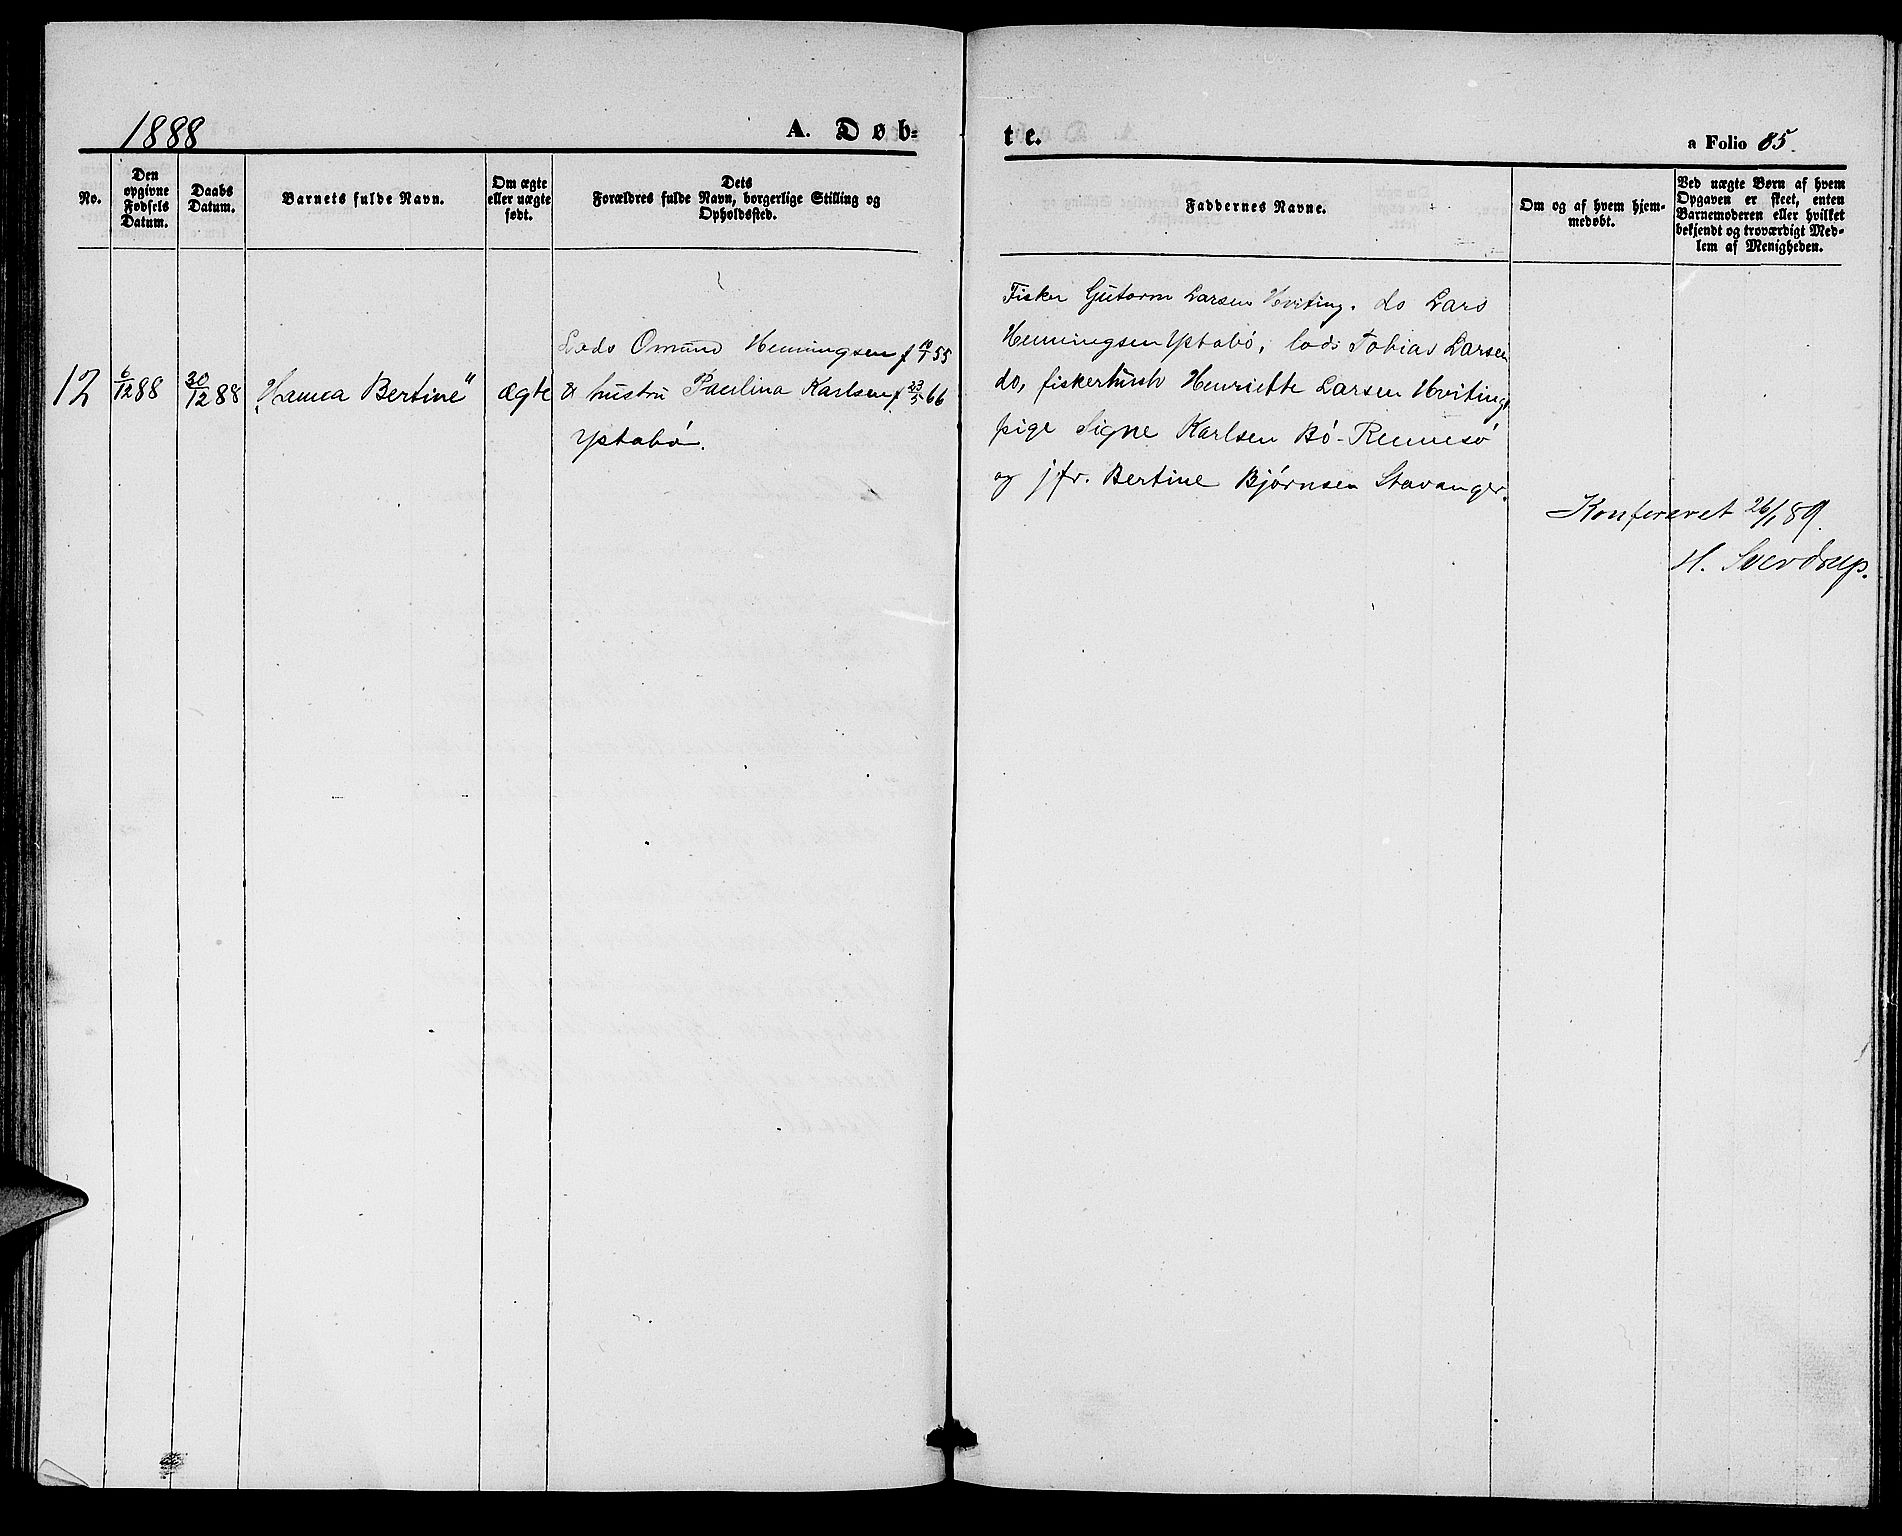 1888
A. Døb-
te.
a Folio 85.
No.
Den
opgivne
Fødsels
Datum.
Daabs
Datum.
Barnets fulde Navn.
Om ægte
eller uægte
født.
Dets
Forældres fulde Navn, borgerlige Stilling og
Opholdssted.
Faddernes Navne.
Om og af hvem hjem-
medøbt.
Ved uægte Børn af hvem
Opgaven er skeet, enten
Barnemoderen eller hvilket
bekjendt og troværdigt Med-
lem af Menigheden.
12
6/12 88
30/12 88
"Hanna Bertine"
ægte
Lods Omund Henningsen f 55
& hustru Paulina Karlsen f. 23/5 66
Ystabø.
Fisker Gutorm Larsen Hviting. do Lars
Henningsen Ystabø, lods Tobias Larsen
do, fiskerhust Henriette Larsen Hviting,
pige Signe Karlsen Bø-Rennesø
og jfr. Bertine Bjørnsen Stavanger.
Konfereret 26/1 89.
H. Sverdrup.